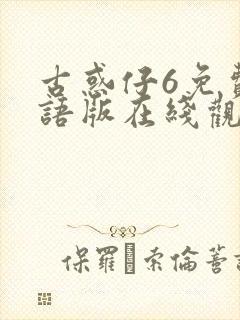 古惑仔6免費
語版在綫觀
保羅 索倫蒂諾